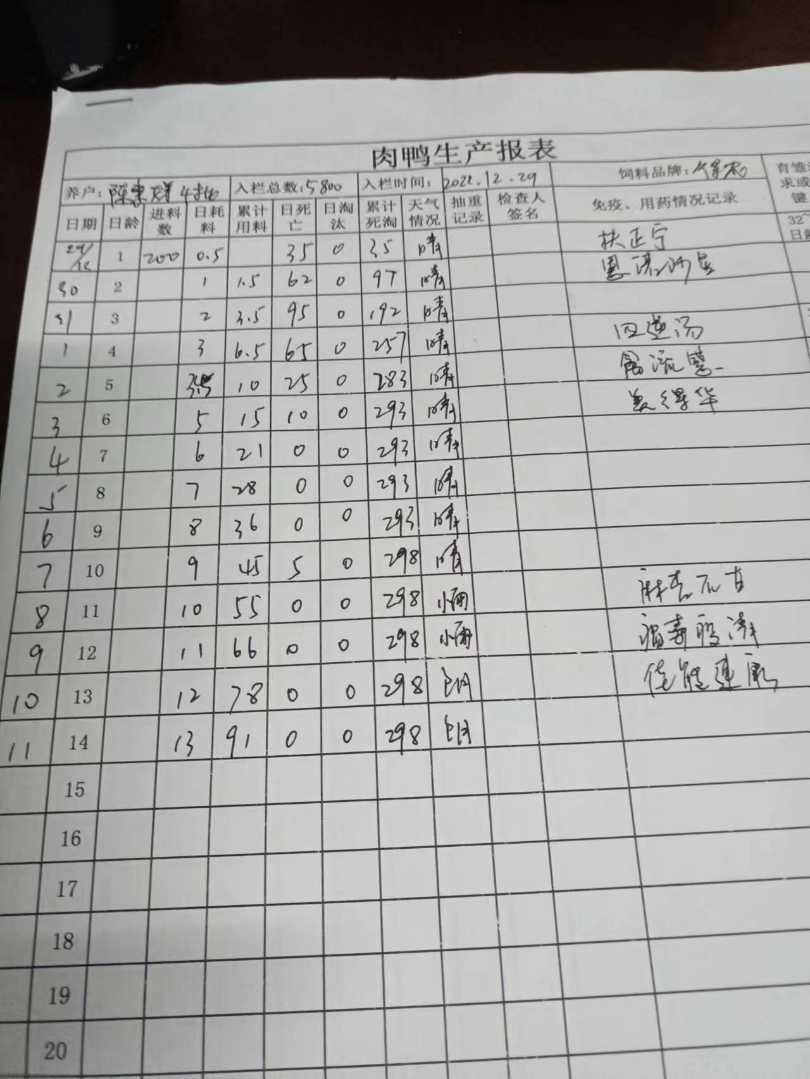 肉鸭生产报表
养户: 入栏总数:5800 入栏时间: 2022.12.29 饲料品牌:
日期 日龄 进料数 日耗料 累计用料 日死亡 日淘汰 累计死淘 天气情况 抽重记录 检查人签名 免疫、用药情况记录
29/12 1 200 0.5 35 0 35 晴 扶正宁
30 2 1 1.5 62 0 97 晴
31 3 2 3.5 95 0 192 晴
1 4 3 6.5 65 0 257 晴 四逆汤
2 5 3.5 10 25 0 283 晴
3 6 5 15 10 0 293 晴
4 7 6 21 0 0 293 晴
5 8 7 28 0 0 293 晴
6 9 8 36 0 0 293 晴
7 10 9 45 5 0 298 晴
8 11 10 55 0 0 298 小雨 麻杏石甘
9 12 11 66 0 0 298 小雨
10 13 12 78 0 0 298
11 14 13 91 0 0 298
15
16
17
18
19
20